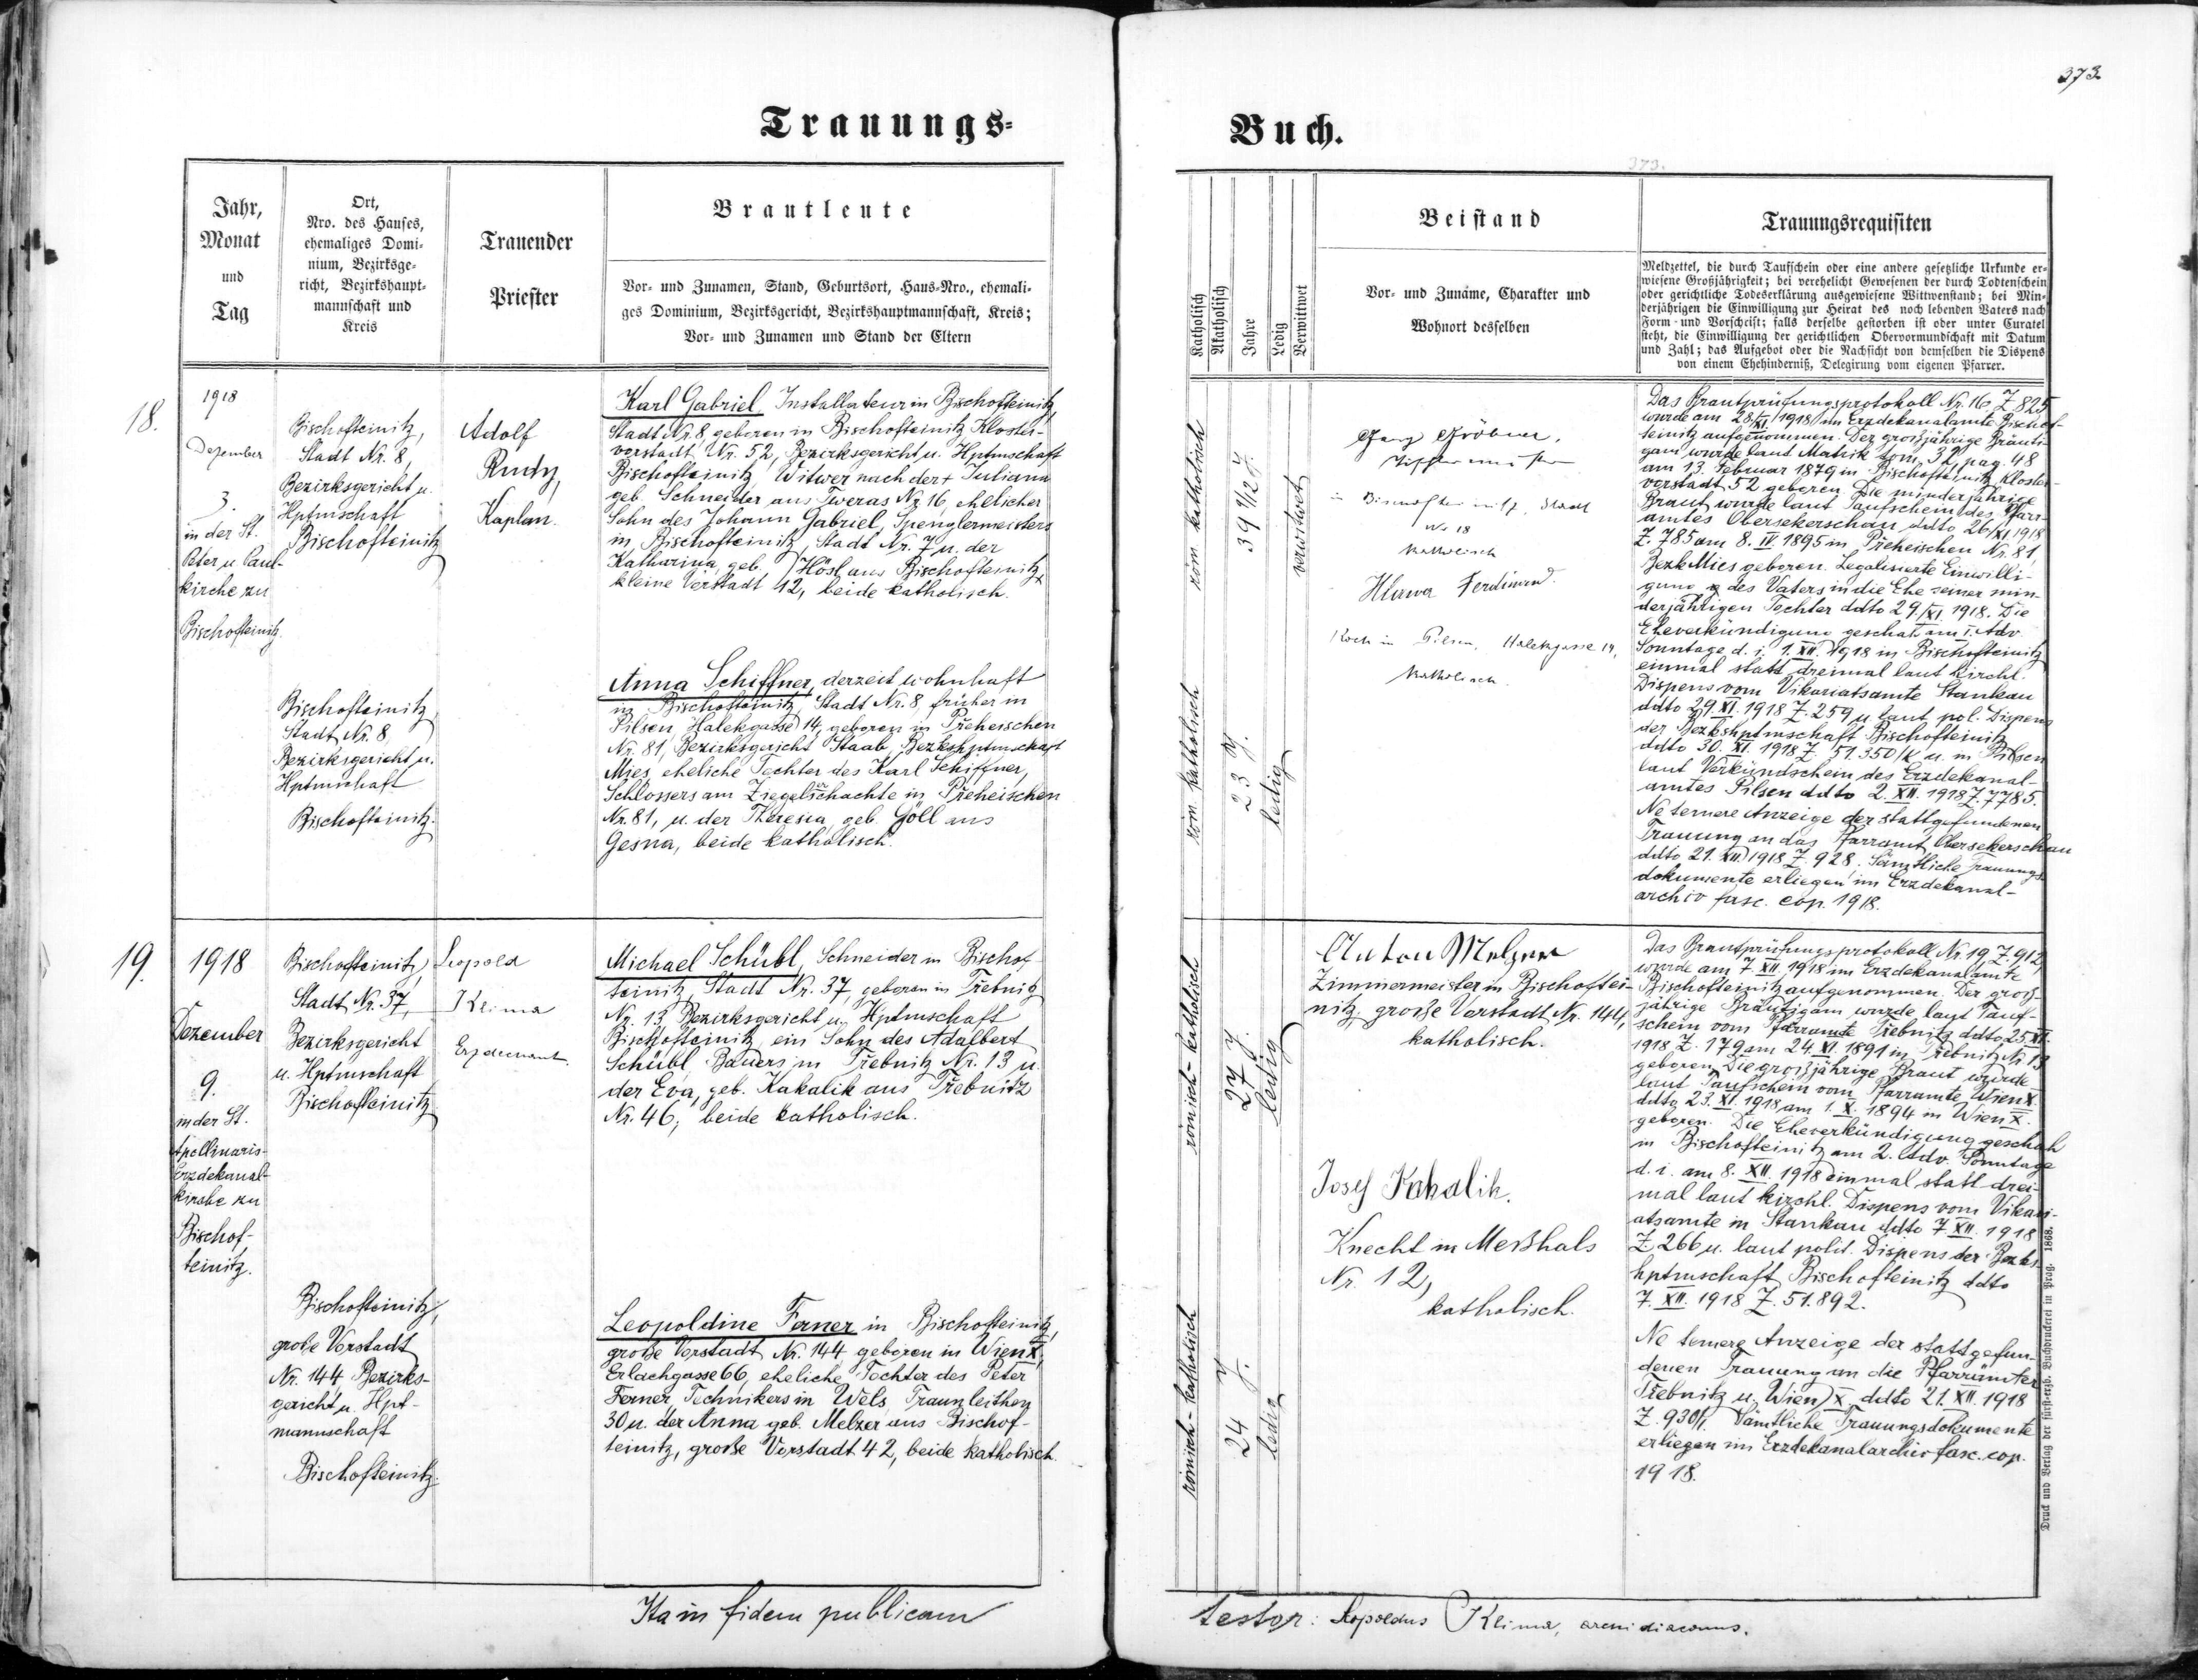 373
Trauungs-
Buch.
373.
Jahr,
Monat
und
Tag
Ort,
Nro. des Hauses,
ehemaliges Domi-
nium, Bezirksge-
richt, Bezirkshaupt-
mannschaft und
Kreis
Trauender
Priester
Brautleute
Vor- und Zunamen, Stand, Geburtsort, Haus-Nro., ehemali-
ges Dominium, Bezirksgericht, Bezirkshauptmannschaft, Kreis;
Vor- und Zunamen und Stand der Eltern
Katholisch
Akatholisch
Jahre
Ledig
Verwittwet
Beistand
Vor- und Zuname, Charakter und
Wohnort desselben
Trauungsrequisiten
Meldzettel, die durch Taufschein oder eine andere gesetzliche Urkunde er-
wiesene Großjährigkeit; bei verehelicht Gewesenen der durch Todtenschein
oder gerichtliche Todeserklärung ausgewiesene Wittwenstand; bei Min-
derjährigen die Einwilligung zur Heirat des noch lebenden Vaters nach
Form- und Vorschrift; falls derselbe gestorben ist oder unter Curatel
steht, die Einwilligung der gerichtlichen Obervormundschaft mit Datum
und Zahl; das Aufgebot oder die Nachsicht von demselben die Dispens
von einem Ehehinderniß, Delegirung vom eigenen Pfarrer.
18.
1918
Dezember
3.
in der St.
Peter u. Paul-
kirche zu
Bischofteinitz.
Bischofteinitz,
Stadt Nr. 8,
Bezirksgericht u.
Hptmschaft
Bischofteinitz
Adolf
Rudy,
Kaplan.
Karl Gabriel, Installateur in Bischofteinitz,
Stadt Nr. 8, geboren in Bischofteinitz Kloster-
vorstadt Nr. 52, Bezirksgericht u. Hptmschaft
Bischofteinitz, Witwer nach der + Juliana
geb. Schneider aus Tweras Nr. 16, ehelicher
Sohn des Johann Gabriel, Spenglermeisters
in Bischofteinitz, Stadt Nr. 7 u. der
Katharina, geb. Hösl aus Bischofteinitz
kleine Vorstadt 42, beide katholisch.
Bischofteinitz
Stadt Nr. 8
Bezirksgericht u.
Hptmschaft
Bischofteinitz.
Anna Schiffner, derzeit wohnhaft
in Bischofteinitz, Stadt Nr. 8, früher in
Pilsen, Halekgasse 14, geboren in Přeheischen
Nr. 81, Bezirksgericht Staab, Bezkshptmschaft
Mies, eheliche Tochter des Karl Schiffner,
Schlossers am Ziegelschachte in Přeheischen
Nr. 81, u. der Theresia, geb. Göll aus
Gesna, beide katholisch.
röm. katholisch
39 9/12 J.
verwitwet
röm. katholisch
23 J.
ledig
Gröbner,
in Bischofteinitz, Stadt
No 18
katholisch
Hlawa Ferdinand.
Koch in Pilsen, Halekgasse 14,
katholisch.
Das Brautprüfungsprotokoll Nr. 16 Z. 825
wurde am 28/XI. 1918 im Erzdekanalamte Bischof-
teinitz aufgenommen. Der großjährige Bräuti-
gam wurde laut Matrik tom. 32 pag. 48
am 13. Februar 1879 in Bischofteinitz, Kloster-
vorstadt 52 geboren. Die minderjährige
Braut wurde laut Taufschein des Pfarr-
amtes Obersekerschan ddto 26/XI. 1918
Z. 785 am 8. IV. 1895 in Přeheischen Nr. 81,
Bezk Mies geboren. Legalisierte Einwilli-
gung des Vaters in die Ehe seiner min-
derjährigen Tochter ddto 29./XI. 1918. Die
Eheverkündigung geschah am I. Adv.
Sonntage d. i. 1. XII. 1918 in Bischofteinitz
einmal statt dreimal laut kirchl.
Dispens vom Vikariatsamte Stankau
ddto 29. XI. 1918 Z. 259 u. laut pol. Dispens
der Bezkshptmschaft Bischofteinitz
ddto 30. XI. 1918 Z. 51.350/K u. in Pilsen
laut Verkündschein des Erzdekanal-
amtes Pilsen ddto 2. XII. 1918 Z. 7785.
Ne temere Anzeige der stattgefundenen
Trauung an das Pfarramt Obersekerschan
ddto 21. XII. 1918 Z. 928. Sämtliche Trauungs-
dokumente erliegen im Erzdekanal-
archiv fasc. cop. 1918.
19.
1918
Dezember
9.
in der St.
Apollinaris-
Erzdekanal-
kirche zu
Bischof-
teinitz.
Bischofteinitz,
Stadt Nr. 37,
Bezirksgericht
u. Hptmschaft
Bischofteinitz
Leopold
Klima
Erzdechant
Michael Schübl, Schneider in Bischof-
teinitz, Stadt Nr. 37, geboren in Třebnitz
Nr. 13, Bezirksgericht u. Hptmschaft
Bischofteinitz, ein Sohn des Adalbert
Schübl, Bauers in Třebnitz Nr. 13 u.
der Eva, geb. Kakalik aus Třebnitz
Nr. 46, beide katholisch.
Bischofteinitz,
große Vorstadt
Nr. 144 Bezirks-
gericht u. Hpt-
mannschaft
Bischofteinitz.
Leopoldine Ferner in Bischofteinitz,
große Vorstadt Nr. 144, geboren in Wien X,
Erlachgasse 66, eheliche Tochter des Peter
Ferner, Technikers in Wels, Traunleithen
30 u. der Anna geb. Melzer aus Bischof-
teinitz, große Vorstadt 42, beide katholisch.
römisch-katholisch
27 J.
ledig
römisch-katholisch
24 J.
ledig
Anton Melzer
Zimmermeister in Bischoftei-
nitz, große Vorstadt Nr. 144,
katholisch.
Josef Kakalik.
Knecht in Meßhals
Nr. 12,
katholisch.
Das Brautprüfungsprotokoll Nr. 19 Z. 912
wurde am 7. XII. 1918 im Erzdekanalamte
Bischofteinitz aufgenommen. Der groß-
jährige Bräutigam wurde laut Tauf-
schein vom Pfarramte Třebnitz ddto 25. XI.
1918 Z. 179 am 24. XI. 1891 in Třebnitz Nr. 13
geboren. Die großjährige Braut wurde
laut Taufschein vom Pfarramte Wien X.
ddto 23. XI. 1918 am 1. X. 1894 in Wien X.
geboren. Die Eheverkündigung geschah
in Bischofteinitz am 2. Adv. Sonntage
d. i. am 8. XII. 1918 einmal statt drei-
mal laut kirchl. Dispens vom Vikari-
atsamte in Stankau ddto 7. XII. 1918
Z. 266 u. laut polit. Dispens der Bezks-
hptmschaft Bischofteinitz ddto
7. XII. 1918 Z. 51.892.
Ne temere Anzeige der stattgefun-
denen Trauung an die Pfarrämter
Třebnitz u. Wien X. ddto 21. XII. 1918
Z. 930/1. Sämtliche Trauungsdokumente
erliegen im Erzdekanalarchiv fasc. cop.
1918.
Druck und Verlag der fürst-erzb. Buchdruckerei in Prag. 1868.
Ita in fidem publicam
testor: Leopoldus Klima, archidiaconus.